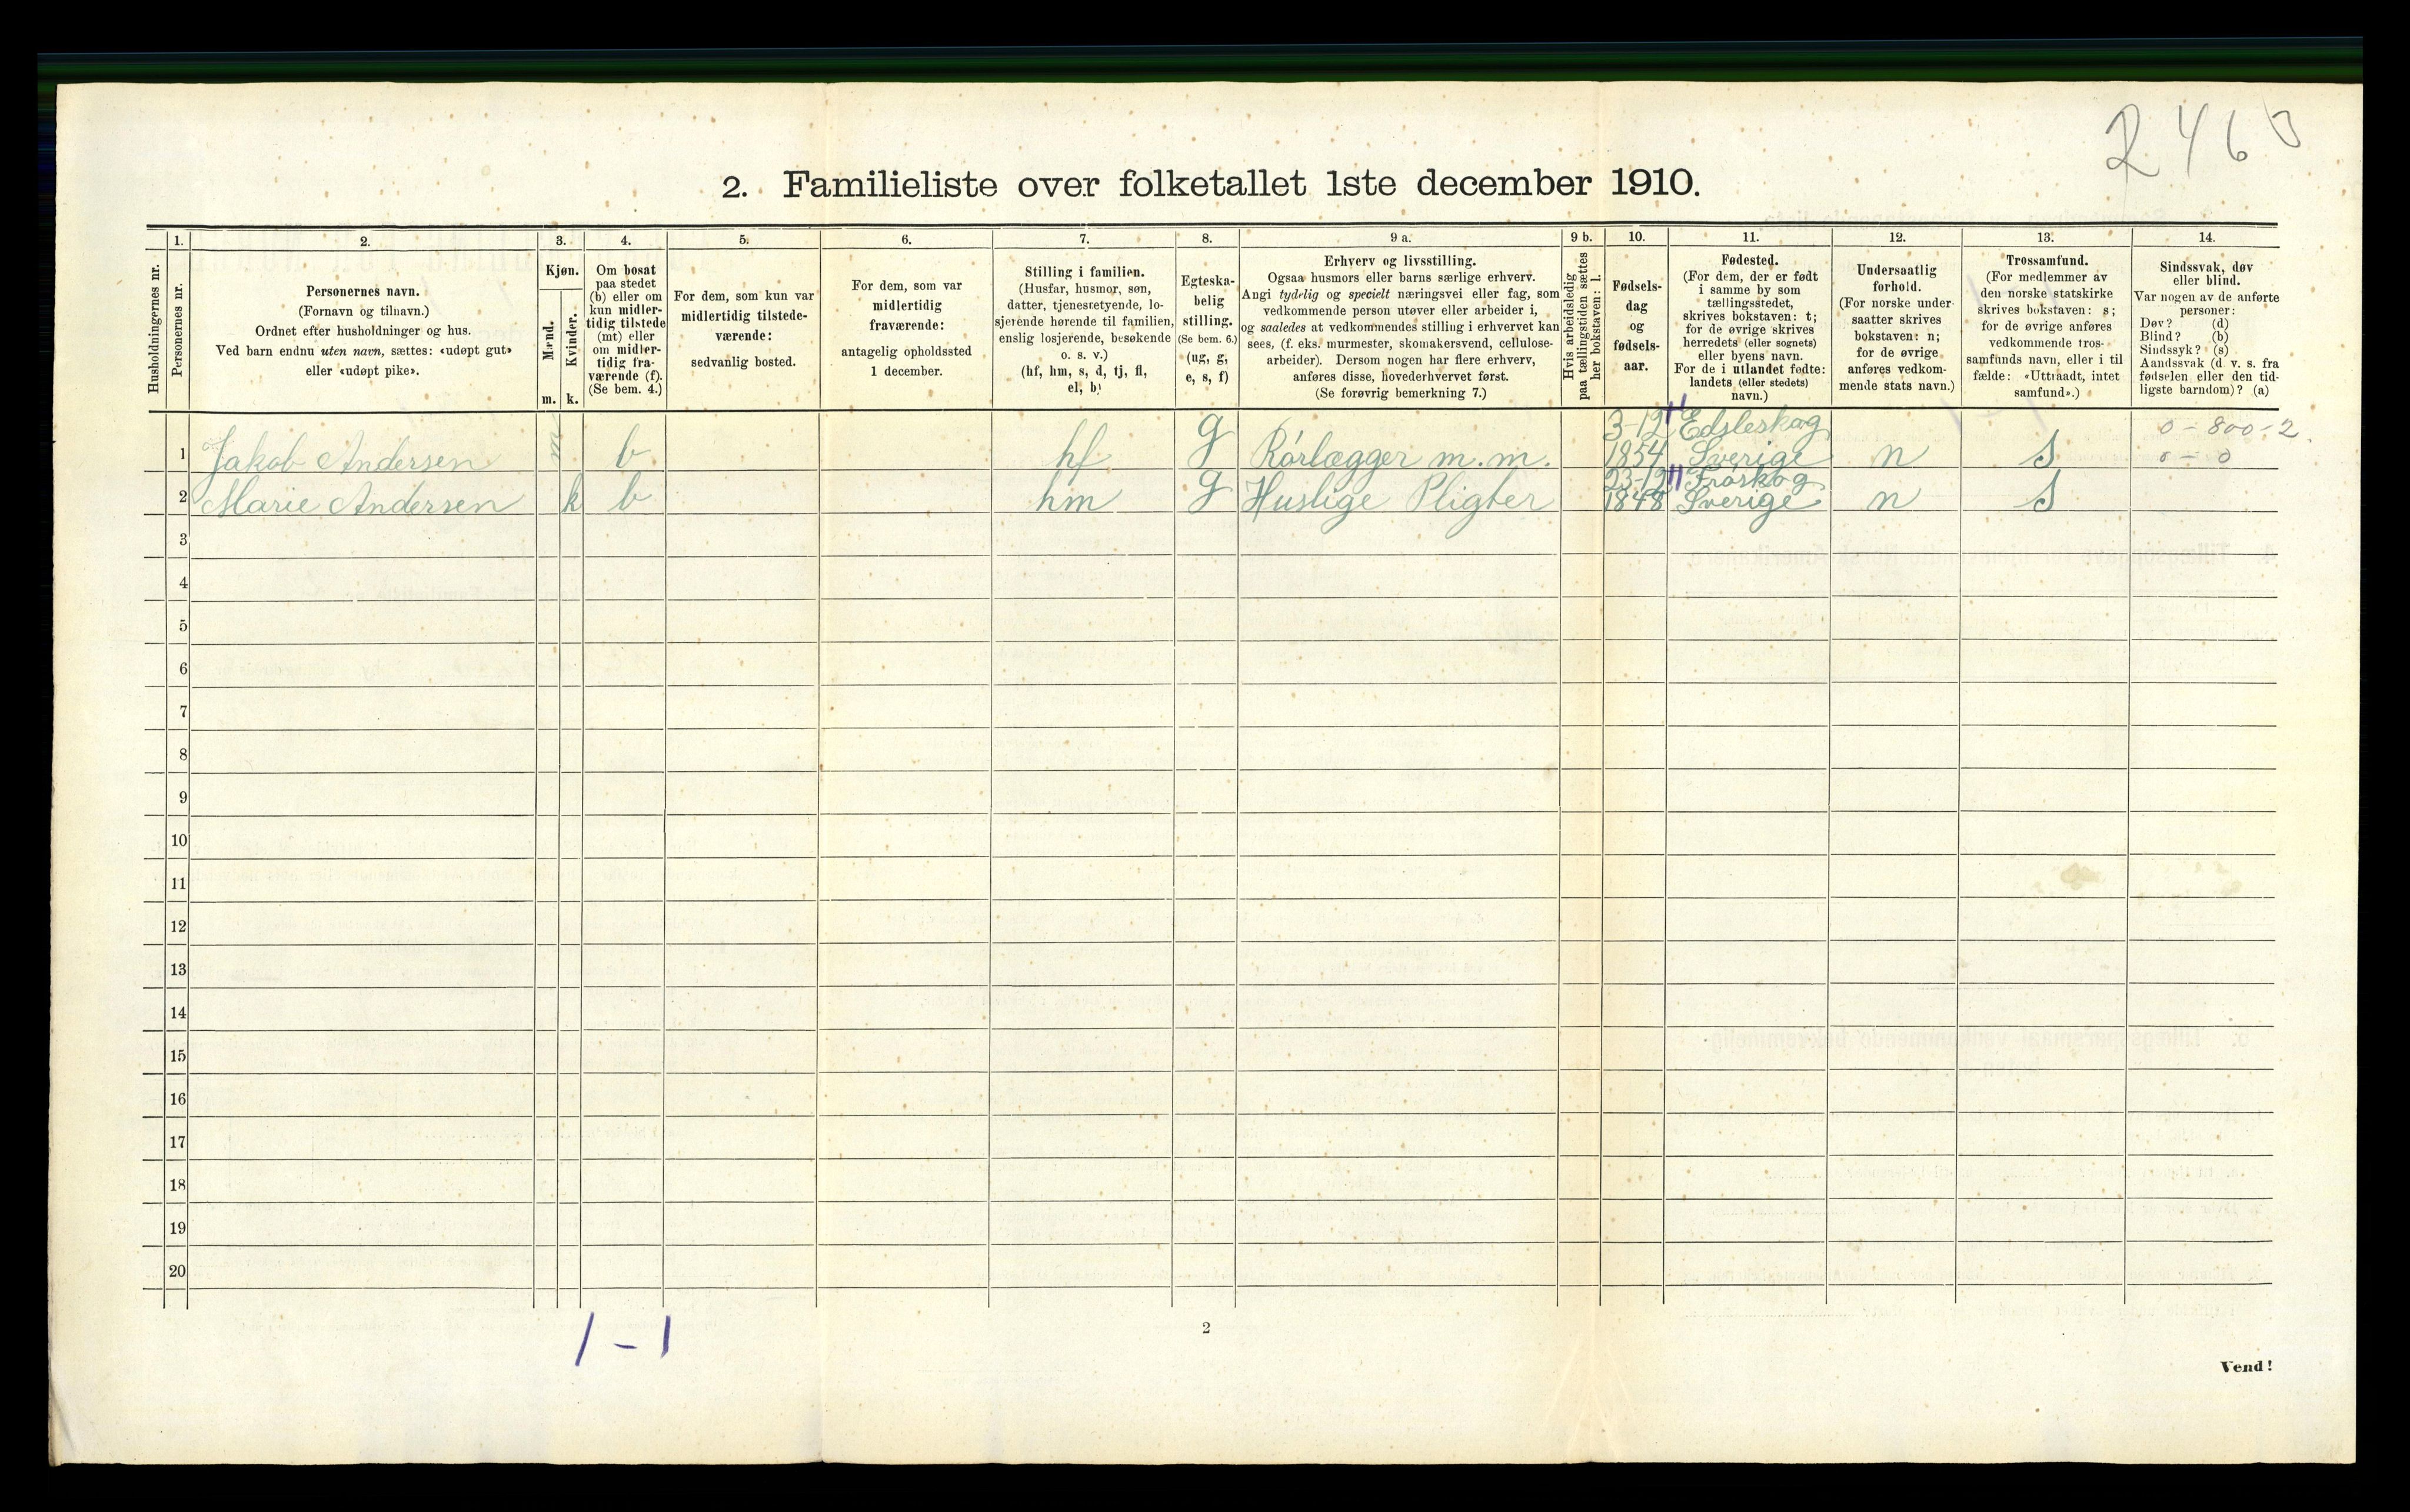 2460
2. Familieliste over folketallet 1ste december 1910.
Husholdningernes nr.
1.
Personernes nr.
2.
Personernes navn.
(Fornavn og tilnavn.)
Ordnet efter husholdninger og hus.
Ved barn endnu uten navn, sættes: «udøpt gut»
eller «udøpt pike».
3.
Kjøn.
Mænd.
Kvinder.
m. k.
4.
Om bosat
paa stedet
(b) eller om
kun midler-
tidig tilstede
(mt) eller
om midler-
tidig fra-
værende (f).
(Se bem. 4.)
5.
For dem, som kun var
midlertidig tilstede-
værende:
sedvanlig bosted.
6.
For dem, som var
midlertidig
fraværende:
antagelig opholdssted
1 december.
7.
Stilling i familien.
(Husfar, husmor, søn,
datter, tjenestetyende, lo-
sjerende hørende til familien,
enslig losjerende, besøkende
o. s. v.)
(hf, hm, s, d, tj, fl,
el, b)
8.
Egteska-
belig
stilling.
(Se bem. 6.)
(ug, g,
e, s, f)
9 a.
Erhverv og livsstilling.
Ogsaa husmors eller barns særlige erhverv.
Angi tydelig og specielt næringsvei eller fag, som
vedkommende person utøver eller arbeider i,
og saaledes at vedkommendes stilling i erhvervet kan
sees, (f. eks. murmester, skomakersvend, cellulose-
arbeider). Dersom nogen har flere erhverv,
anføres disse, hovederhvervet først.
(Se forøvrig bemerkning 7.)
9 b.
Hvis arbeidsledig
paa tællingstiden sættes
her bokstaven: l.
10.
Fødsels-
dag
og
fødsels-
aar.
11.
Fødested.
(For dem, der er født
i samme by som
tællingsstedet,
skrives bokstaven: t;
for de øvrige skrives
herredets (eller sognets)
eller byens navn.
For de i utlandet fødte:
landets (eller stedets)
navn.)
12.
Undersaatlig
forhold.
(For norske under-
saatter skrives
bokstaven: n;
for de øvrige
anføres vedkom-
mende stats navn.)
13.
Trossamfund.
(For medlemmer av
den norske statskirke
skrives bokstaven: s;
for de øvrige anføres
vedkommende tros-
samfunds navn, eller i til
fælde: «Uttraadt, intet
samfund».)
14.
Sindssvak, døv
eller blind.
Var nogen av de anførte
personer:
Døv? (d)
Blind? (b)
Sindssyk? (s)
Aandssvak (d. v. s. fra
fødselen eller den tid-
ligste barndom)? (a)
1 Jakob Andersen m b hf g Rórlægger m.m. 3-12 1854 Edsleskog Sverige n s 0-800-2
0-0
2 Marie Andersen k b hm g Huslige Pligter 23-12 1848 Fróskog Sverige n s
3
4
5
6
7
8
9
10
11
12
13
14
15
16
17
18
19
20
1-1
2
Vend!